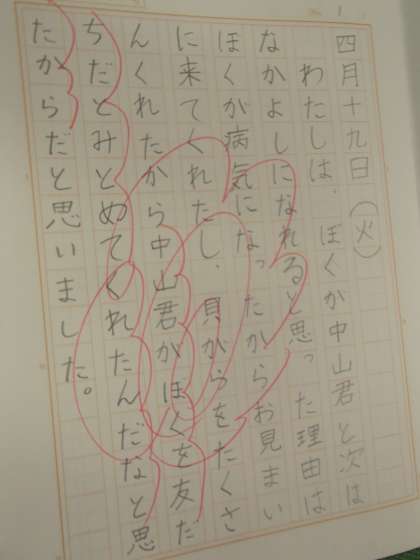 四月十九日(火)
わたしは、ぼくが中山君と次は
なかよしになれると思った理由は
ぼくが病気になったからお見まい
に来てくれたし、貝がらをたくさ
んくれたから中山君がぼくを友だ
ちだとみとめてくれたんだなと思
たからだと思いました。